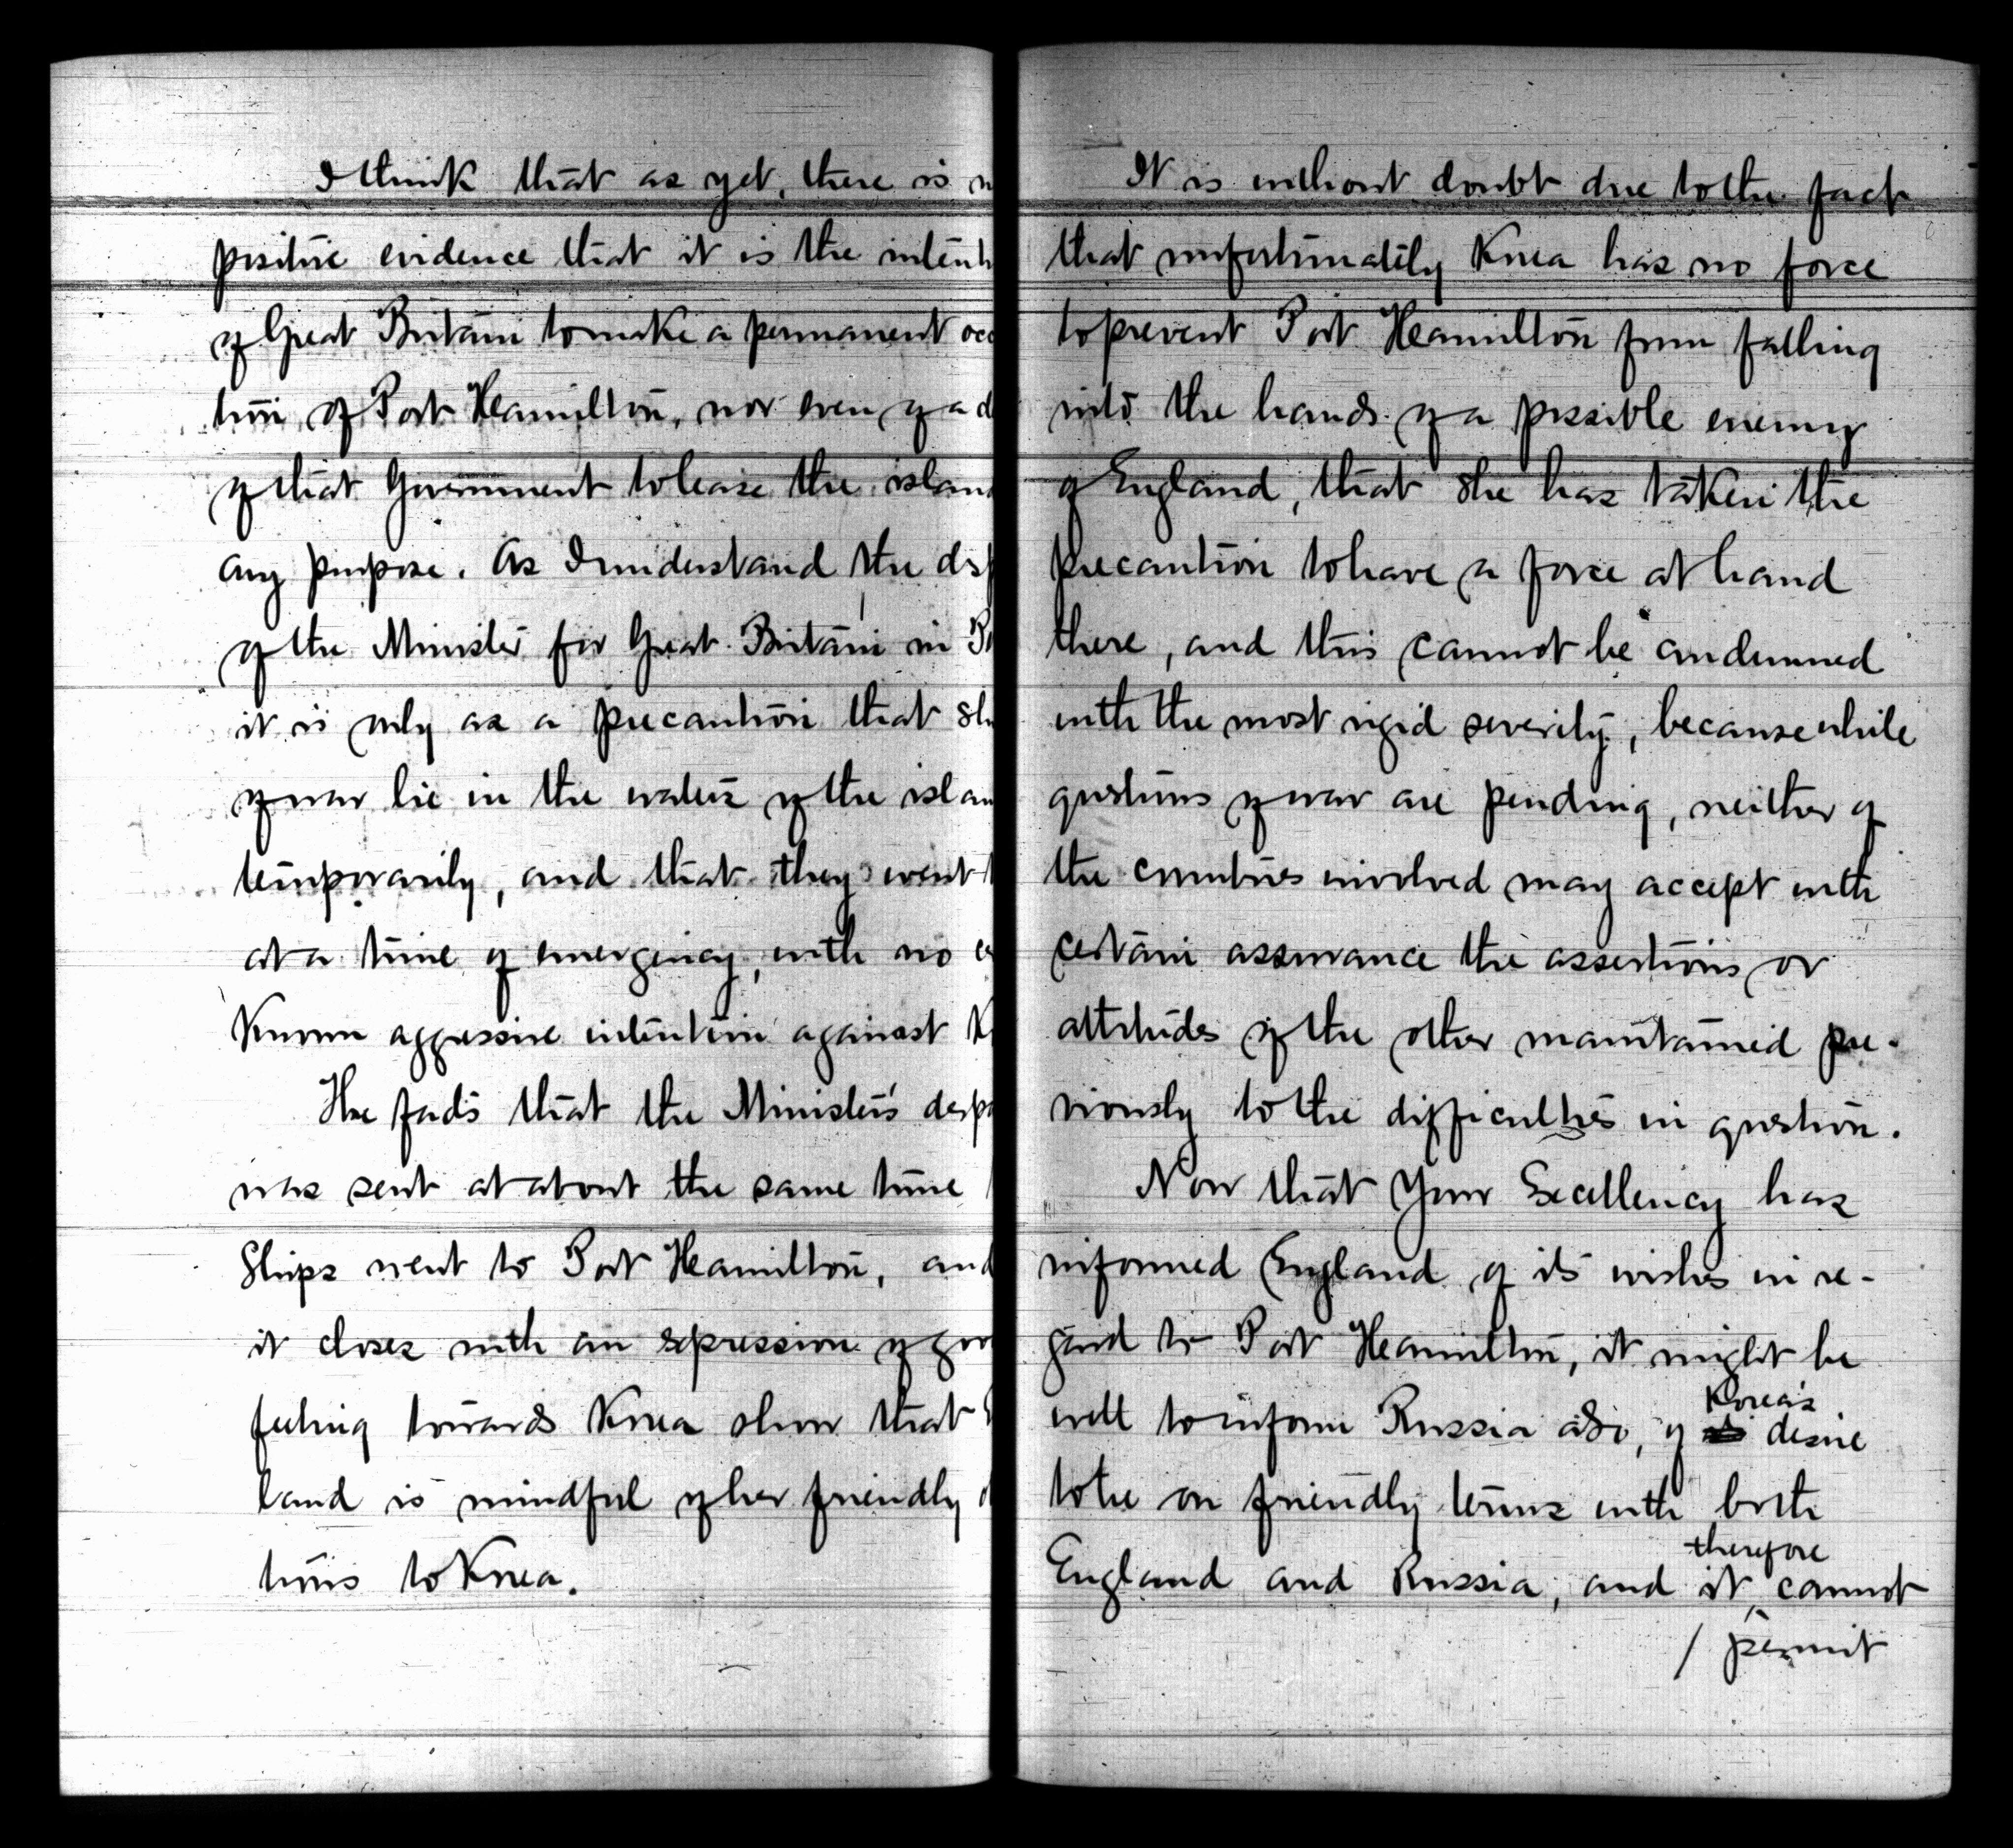 I think that as yet, there is
positive evidence that it is the intent
of Great Britain to make a permanent occ
tion of Port Hamilton, nor even of a d
of that Government to lease the islan
any purpose. As I understand the des
of the Minister for Great Britain in
it is only as a precaution that sh
of war lie in the waters of the islan
temporarily, and that they went
at a time of emergency, with no
Known aggressive intention against K
The facts that the Minister's desp
was sent at about the same time
Ships went to Port Hamilton, and
it closes with an expression of goo
feeling towards Korea show that
land is mindful of her friendly
tions to Korea.
It is without doubt due to the fact
that unfortunately Korea has no force
to prevent Port Hamilton from falling
into the hands of a possible enemy
of England, that she has taken the
precaution to have a force at hand
there, and this cannot be condemned
with the most rigid severity, because while
questions of war are pending, neither of
the countries involved may accept with
certain assurance the assertions or
attitudes of the other maintained pre-
viously to the difficulties in question.
Now that Your Excellency has
informed England of its wishes in re-
gard to Port Hamilton, it might be
well to inform Russia also, of Korea's desire
to be on friendly terms with both
England and Russia, and it therefore cannot
/ permit